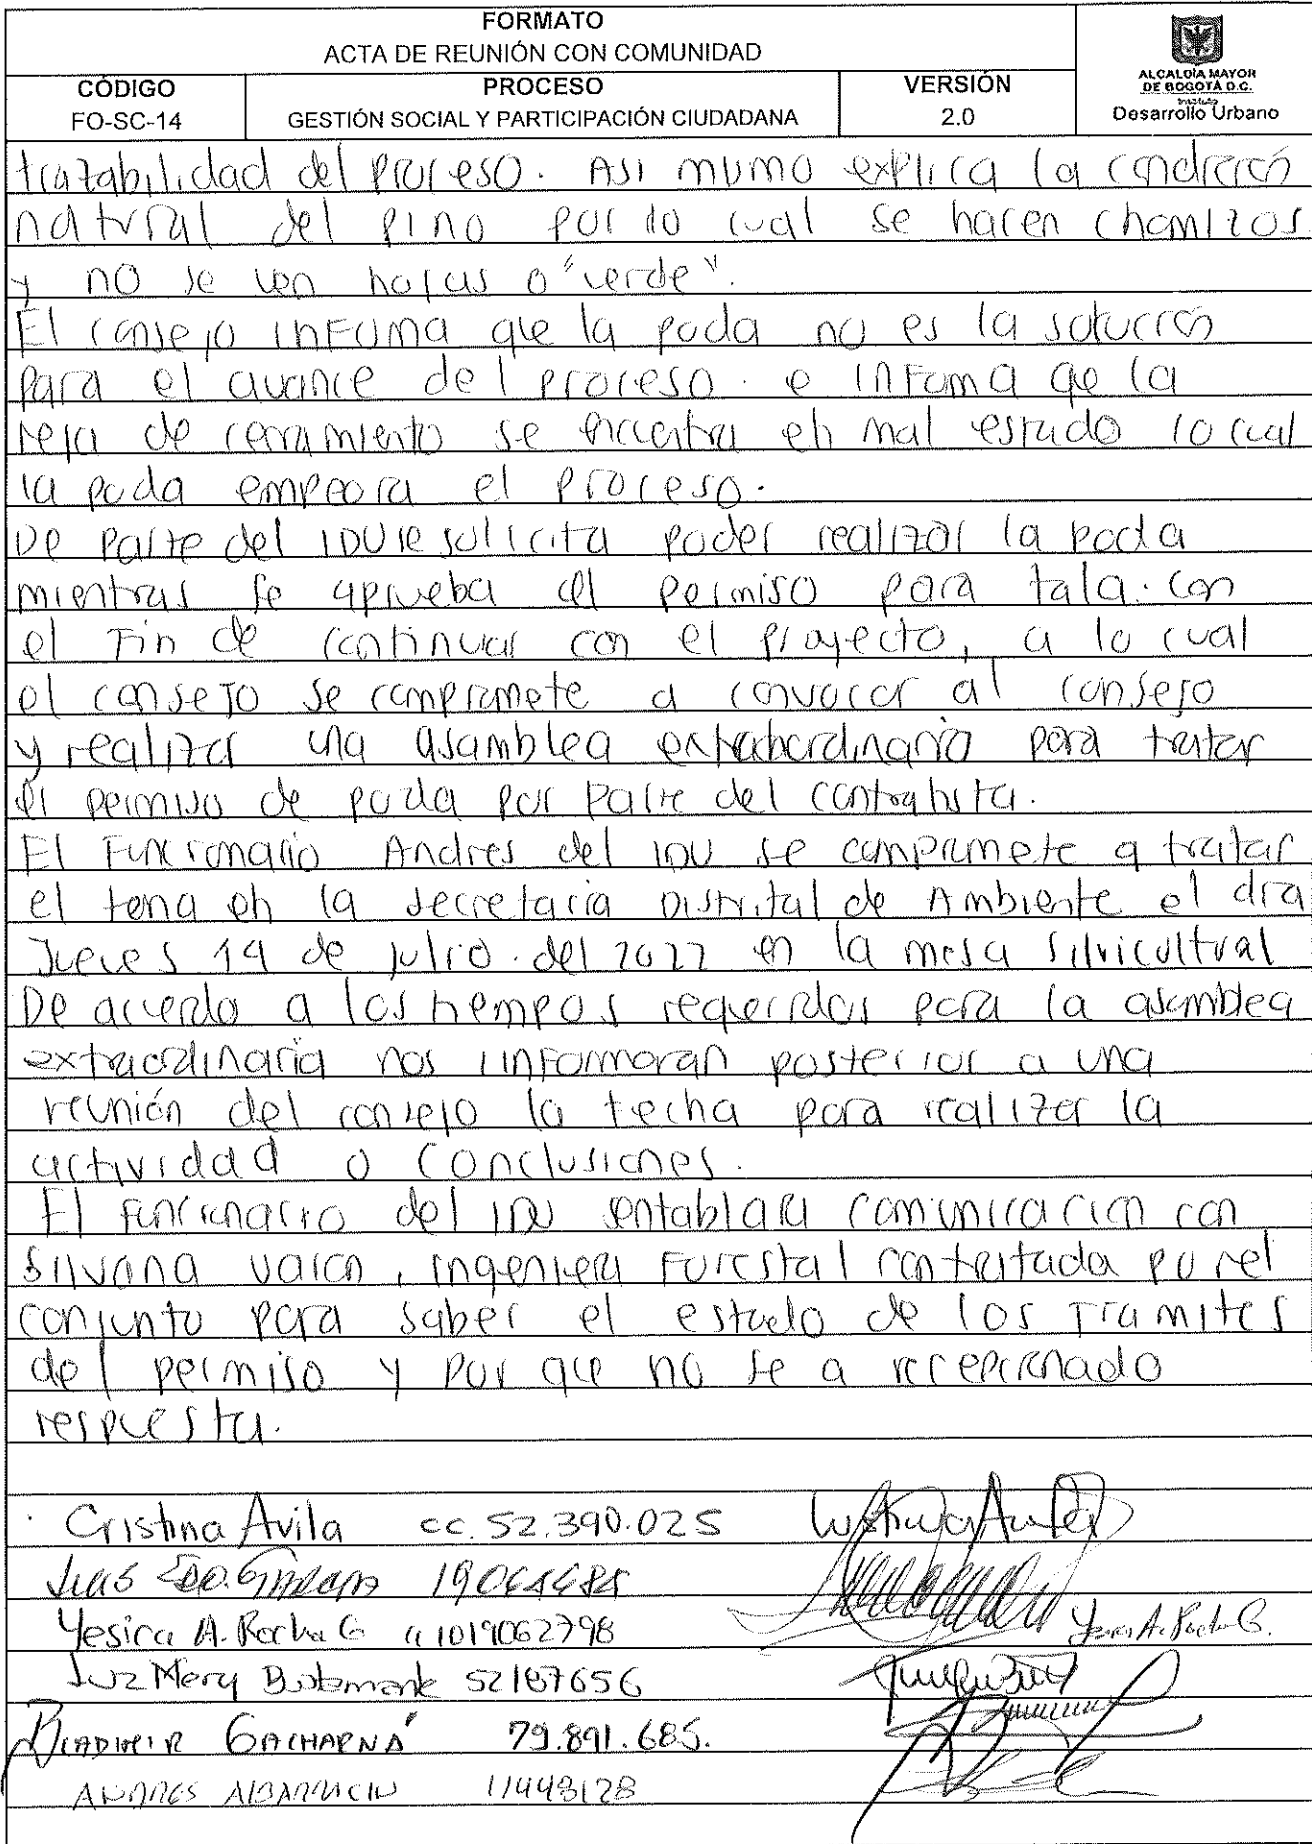 FORMATO
ACTA DE REUNIÓN CON COMUNIDAD
CÓDIGO
FO-SC-14
PROCESO
GESTIÓN SOCIAL Y PARTICIPACIÓN CIUDADANA
VERSIÓN
2.0
ALCALDÍA MAYOR
DE BOGOTÁ D.C.
Instituto
Desarrollo Urbano
trazabilidad del proceso. Asi mismo explica la condición
natural del pino por lo cual se hacen chamizos
y no se ven hojas o "verde".
El consejo informa que la poda no es la solución
para el avance del proceso. e informa que la
reja de cerramiento se encuentra en mal estado lo cual
la poda empeora el proceso.
De parte del IDU se solicita poder realizar la poda
mientras se aprueba el permiso para tala. con
el fin de continuar con el proyecto, a lo cual
el consejo se compromete a convocar al consejo
y realizar una asamblea extrahordinaria para tratar
el permiso de poda por parte del contratista.
El Funcionario Andres del IDU se compromete a tratar
el tema en la secretaria Distrital de Ambiente el dia
Jueves 14 de julio. del 2022 en la mesa silvicultural
De acuerdo a los tiempos requeridos para la asamblea
extraordinaria nos informaran posterior a una
reunión del consejo la fecha para realizar la
actividad o conclusiones.
El funcionario del IDU entablara comunicacion con
Silvana, ingeniera Forestal contratada por el
conjunto para saber el estado de los tramites
del permiso y por que no se a recepcionado
respuesta.
Cristina Avila cc. 52.390.025
Luis Edo.
Yesica A. Rocha G cc 1019062798 Yesica A. Rocha G.
Luz Mery Bustamante 52187656
Bladimir Gacharná 79.891.685.
ANDRES ALBARRACIN 11448128